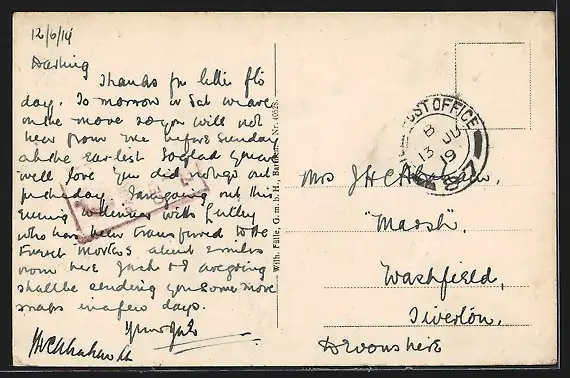 12/6/19
Darling
Thanks for letter
day. To morrow is Sat we are
on the move so you will not
hear from me before Sunday
at the earliest So glad you are
well love you did not go out
yesterday I am going out this
Evening to dinner with
who has been transferred to the
Trench Mortars about 2 miles
from here Jack & I are going
shall be sending you some more
snaps in a few days.
Yours
JHC Abraham Lt
Wilh. Fülle, G. m. b. H., Barmen. Nr. 4028.
POST OFFICE
B
13 JU
19
Mrs J H C Abraham.
"Marsh".
Washfield,
Tiverton,
Devonshire